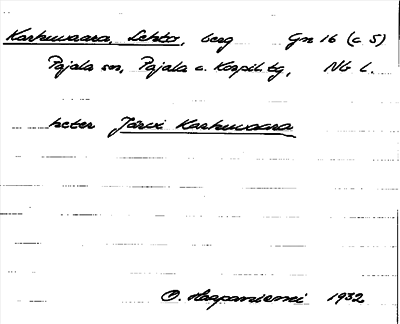 Karhuvaara, Lehto, berg Gn 16 (c 5)
Pajala sn, Pajala o. Korpil. tg, Nb l.
heter Järvi Karhuvaara
O. Haapaniemi 1932